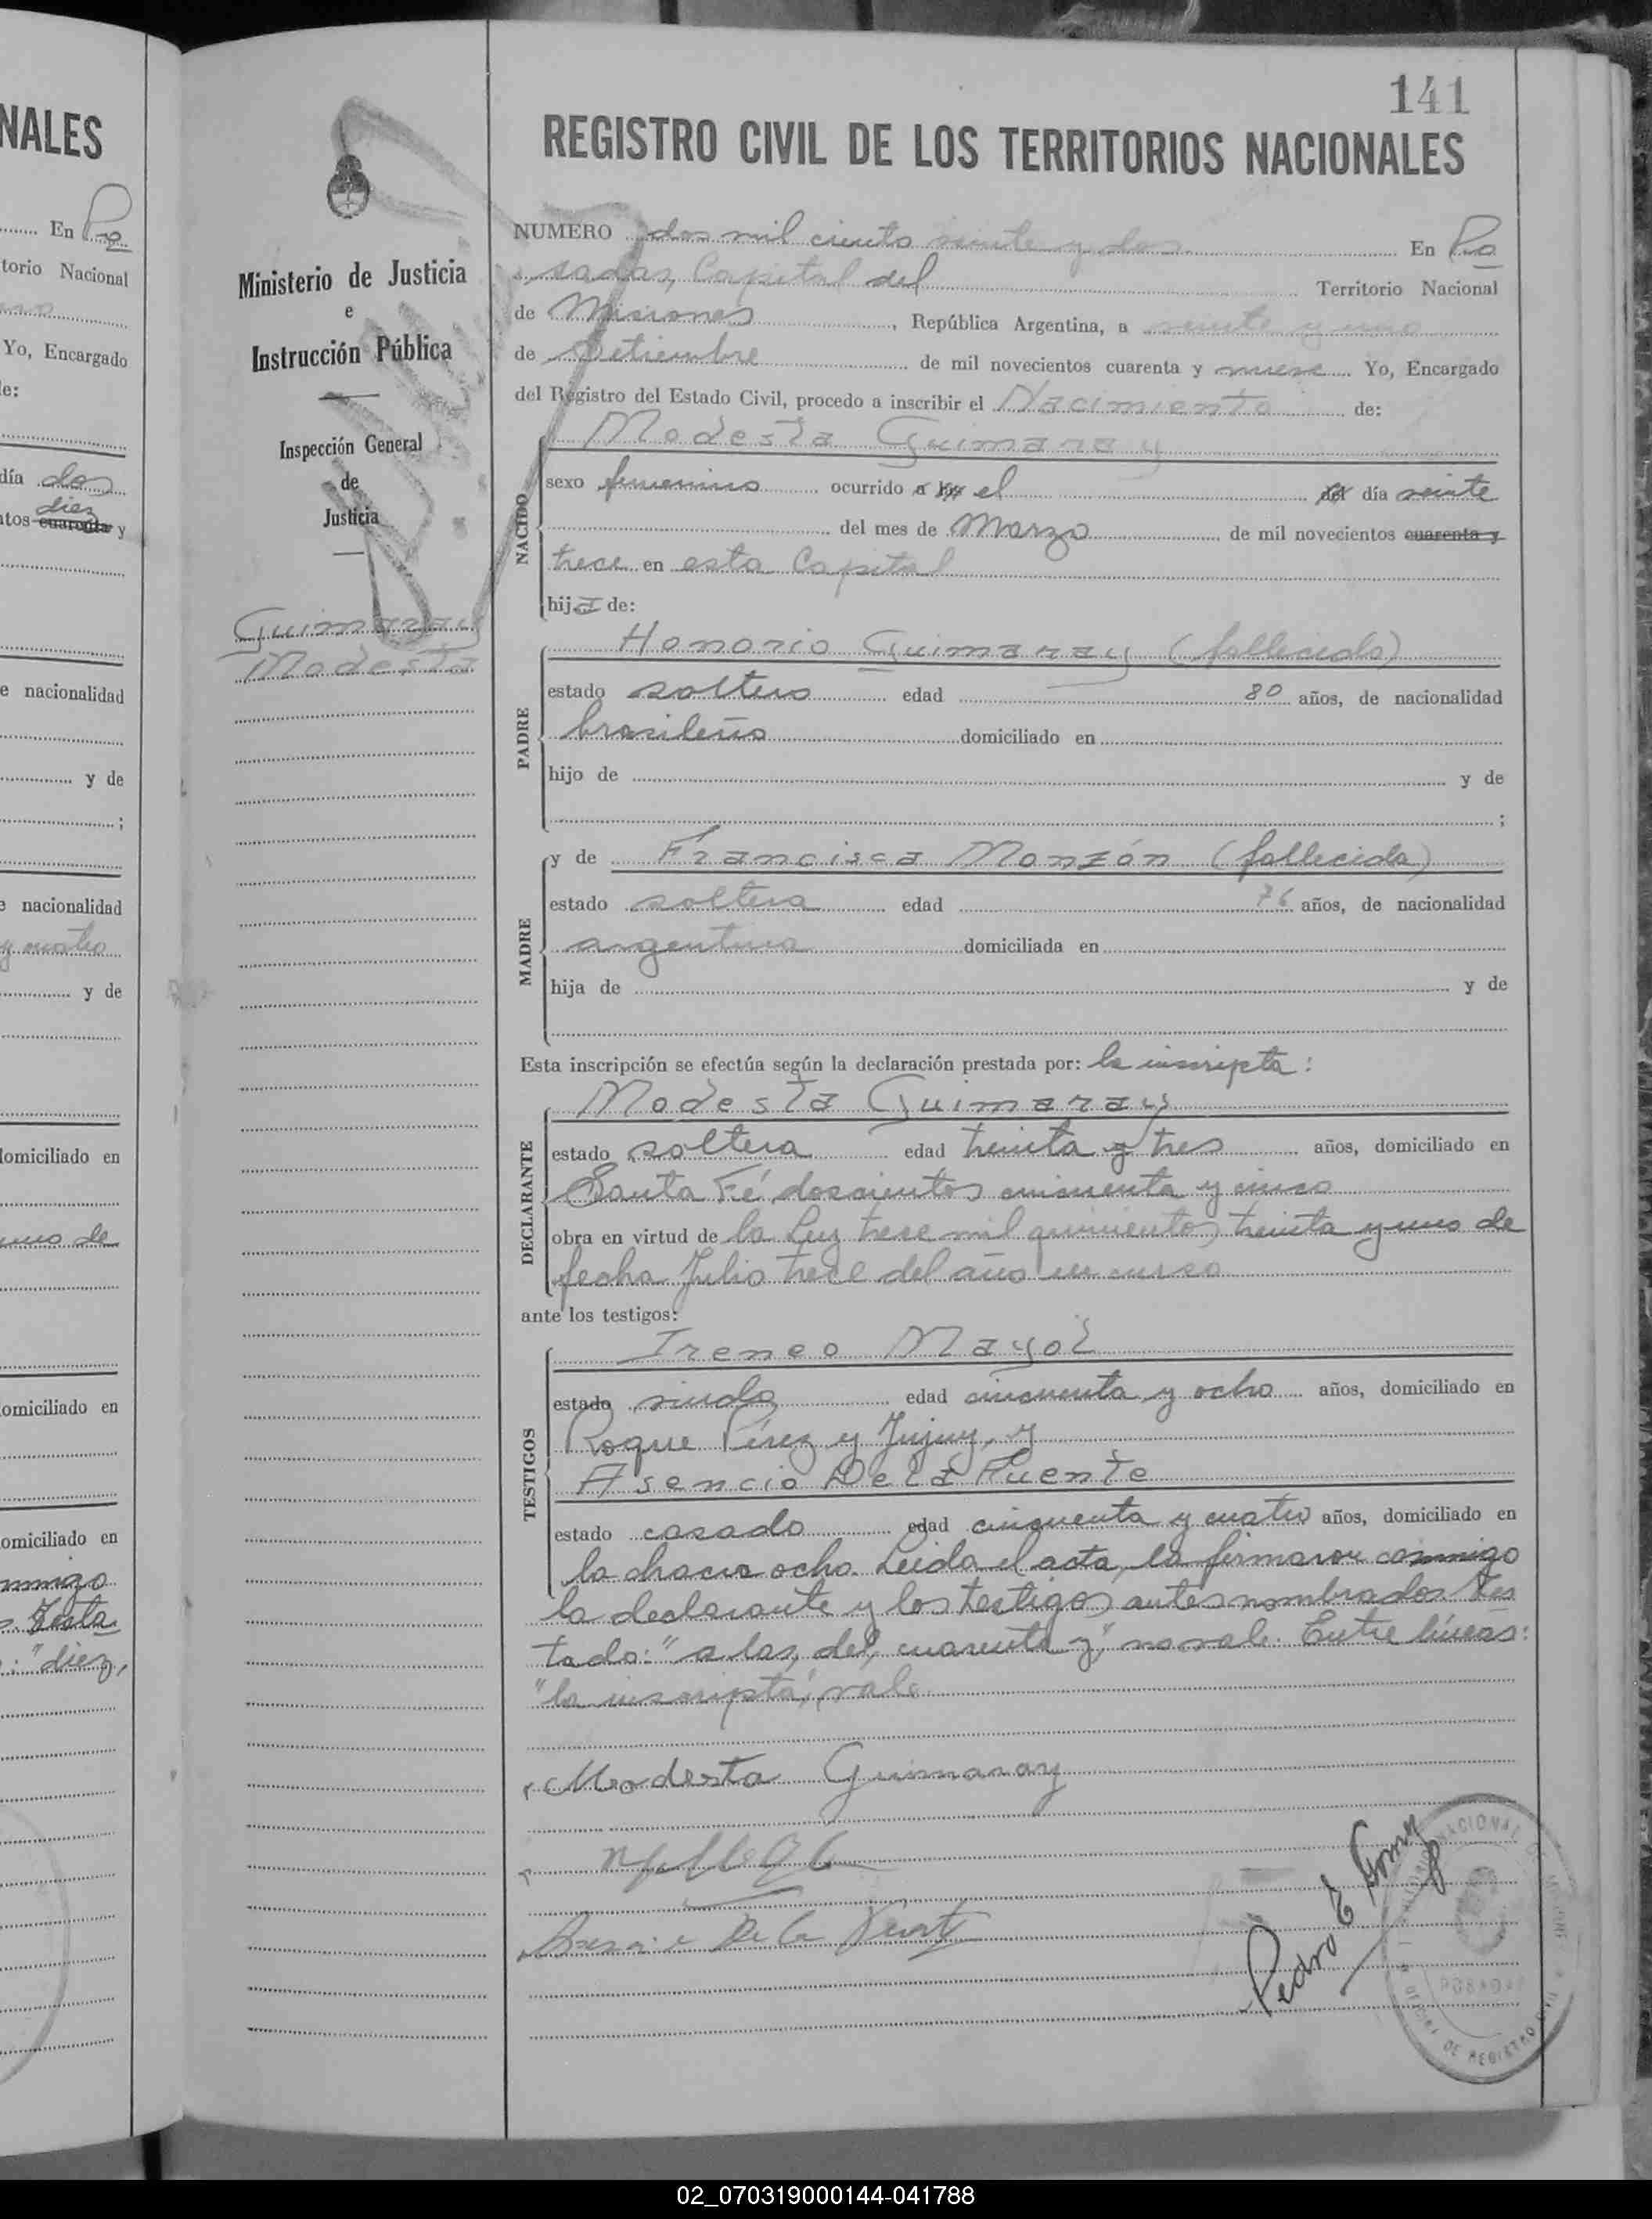 NALES
En Po
torio Nacional
Yo, Encargado
de:
día dos
diez
tos cuarenta y
e nacionalidad
y de
;
e nacionalidad
y cuatro
y de
domiciliado en
uno de
omiciliado en
omiciliado en
nmigo
Testa
: "diez,
141
REGISTRO CIVIL DE LOS TERRITORIOS NACIONALES
Ministerio de Justicia
e
Instrucción Pública
Inspección General
de
Justicia
Guimaray
Modesta
NUMERO dos mil ciento veinte y dos En Po
sadas, Capital del Territorio Nacional
de Misiones, República Argentina, a veinte y uno
de Setiembre de mil novecientos cuarenta y nueve. Yo, Encargado
del Registro del Estado Civil, procedo a inscribir el Nacimiento de:
Modesta Guimaray
NACIDO
sexo femenino ocurrido a las el del día veinte
del mes de Marzo de mil novecientos cuarenta y
trece en esta Capital
hija de:
Honorio Guimaray (fallecido)
PADRE
estado soltero edad 80 años, de nacionalidad
brasileño domiciliado en
hijo de y de
;
y de Francisca Monzón (fallecida)
MADRE
estado soltera edad 76 años, de nacionalidad
argentina domiciliada en
hija de y de
Esta inscripción se efectúa según la declaración prestada por: la inscripta:
Modesta Guimaray
DECLARANTE
estado soltera edad treinta y tres años, domiciliado en
Santa Fé doscientos cincuenta y cinco
obra en virtud de la Ley trece mil quinientos treinta y uno de
fecha Julio trece del año en curso
ante los testigos:
Ireneo Mayol
TESTIGOS
estado viudo edad cincuenta y ocho años, domiciliado en
Roque Pérez y Jujuy, y
Asencio De la Puente
estado casado edad cinquenta y cuatro años, domiciliado en
la chacra ocho. Leida el acta, la firmaron conmigo
la declarante y los testigos antes nombrados. Tes
tado: "a las, del, cuarenta y," no vale. Entre líneas:
"la inscripta", vale
Modesta Guimaray
Asencio De la Puente
Pedro E Gomez
NACIONAL DE MISIONES
POSADAS
OFICINA DE REGISTRO CIVIL
02_070319000144-041788